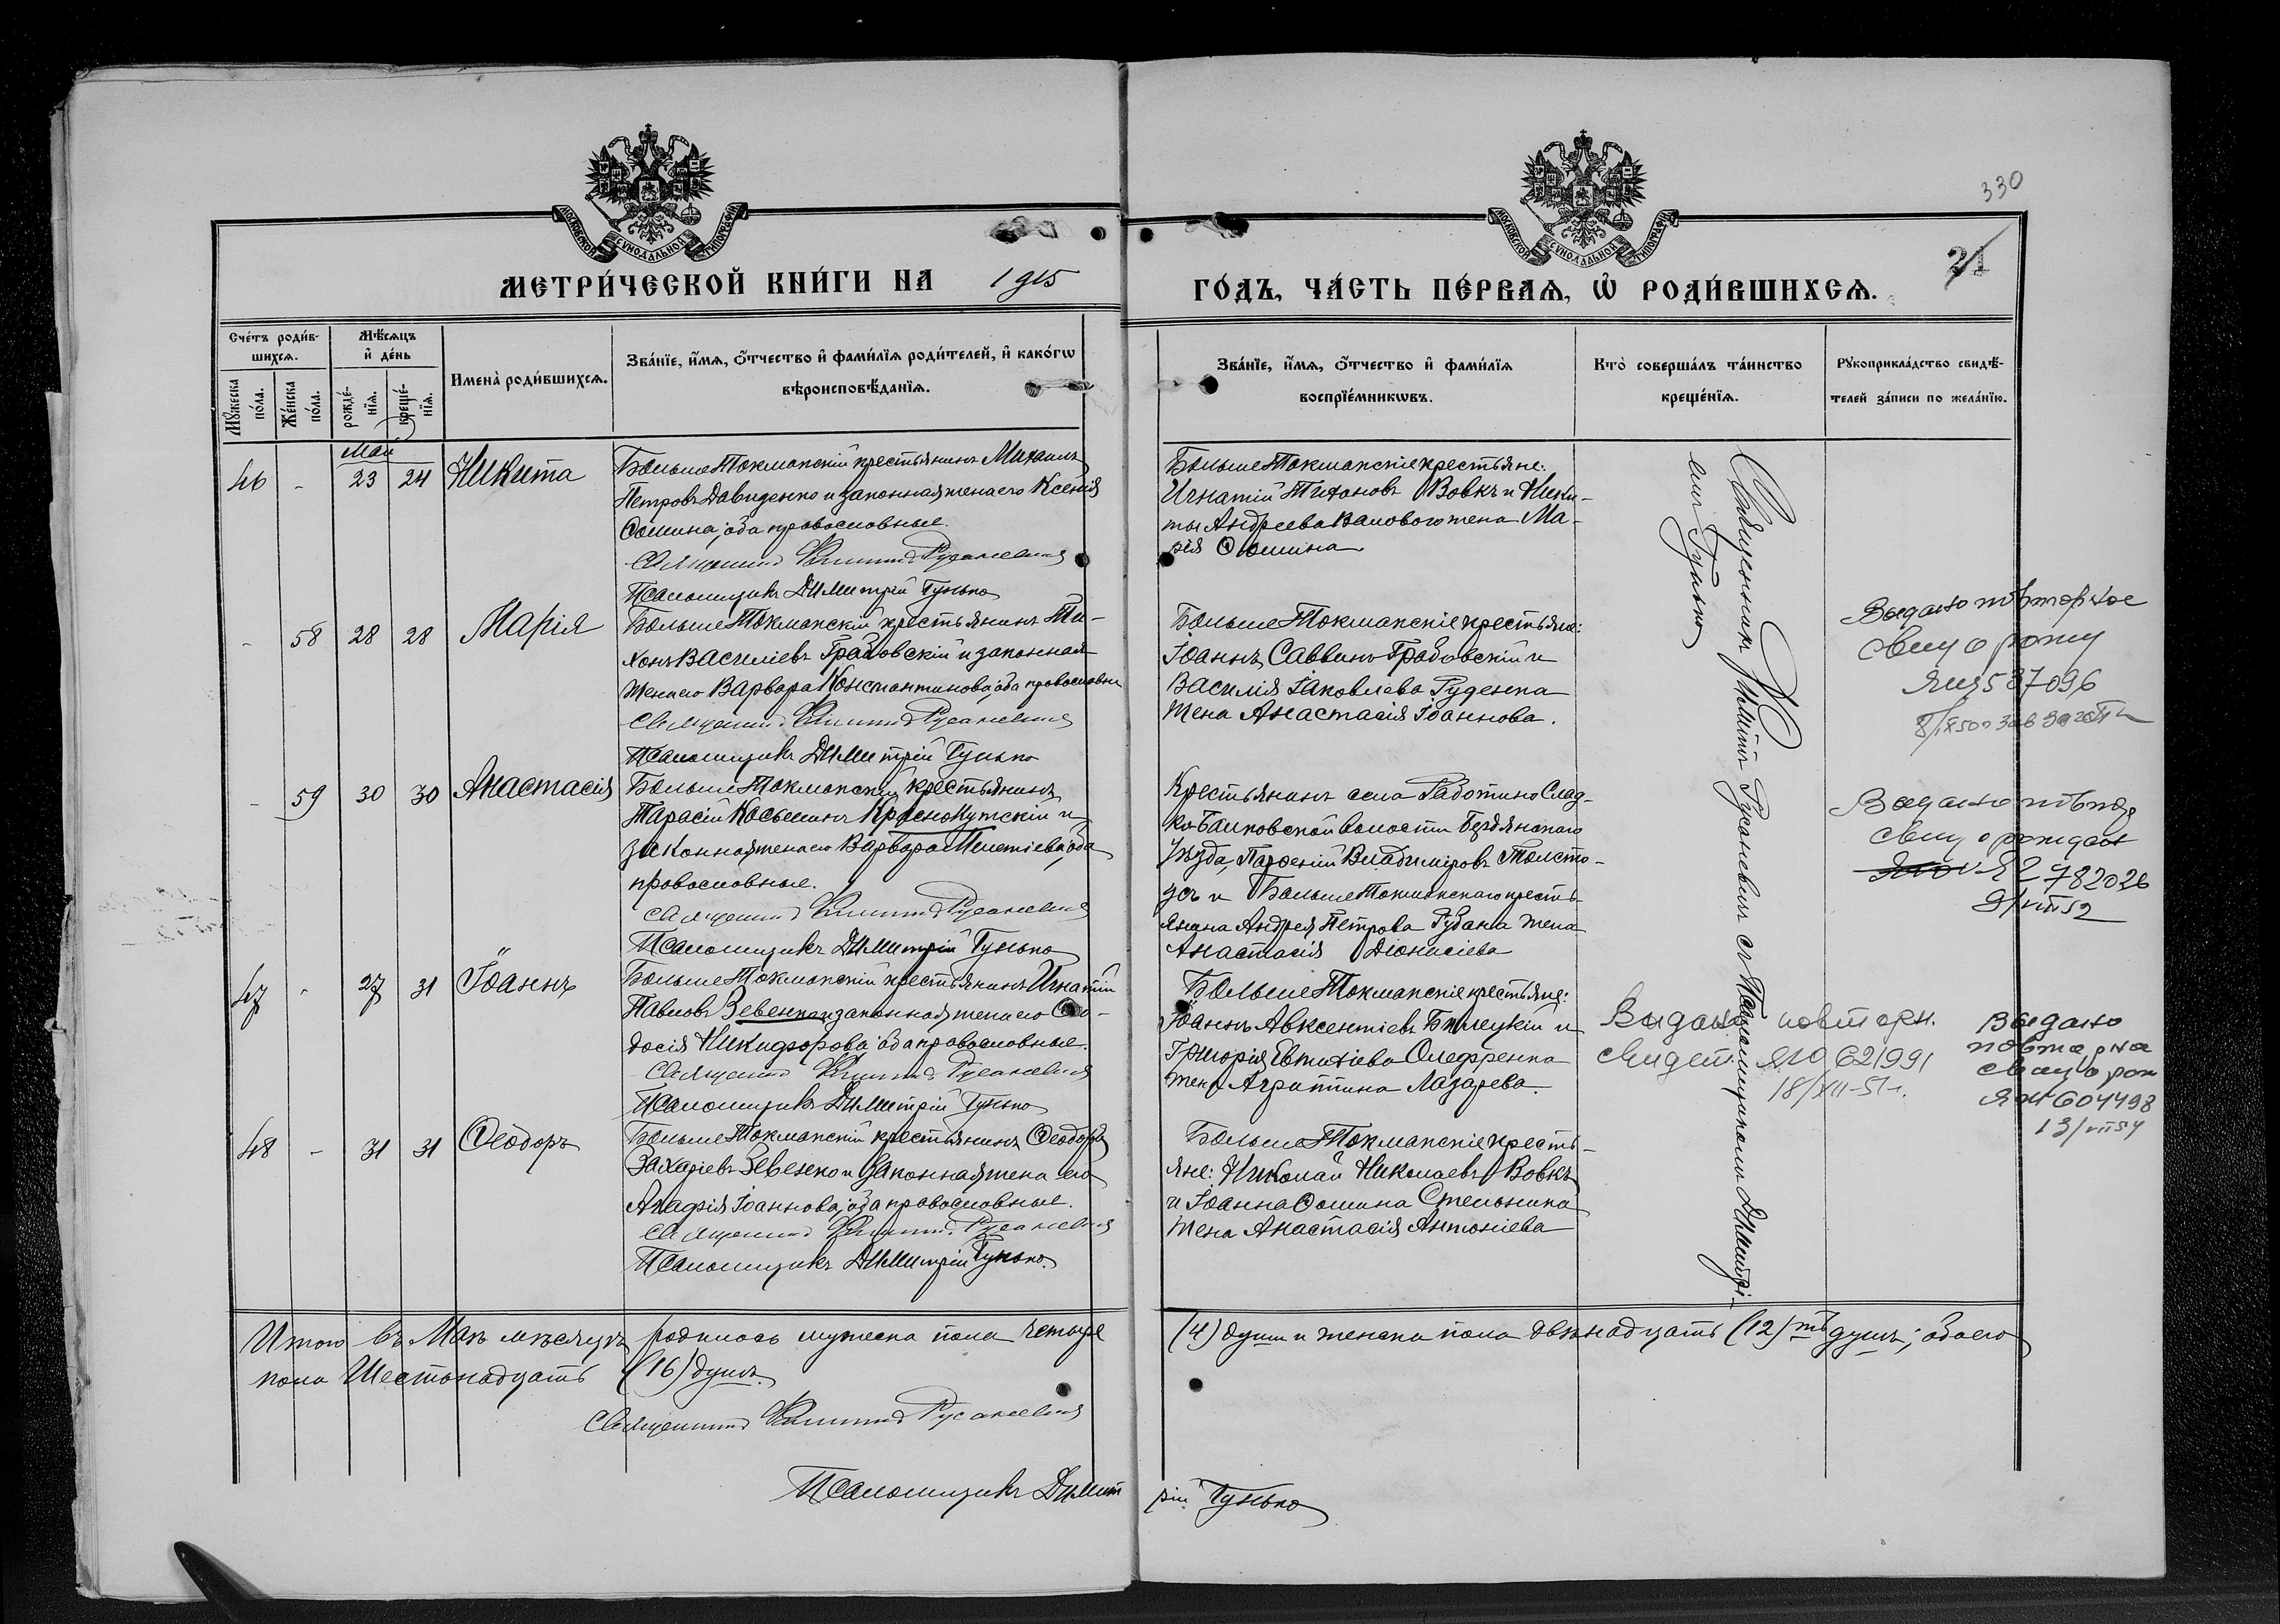 330
21
МЕТРИ́ЧЕСКОЙ КНИ́ГИ НА 1915
ГО́ДЪ, ЧА́СТЬ ПЕ́РВАѦ, Ѽ РОДИ́ВШИХСѦ.
Сче́тъ роди́в-
шихсѧ.
Мꙋ́жеска по́ла.
Же́нска по́ла.
Мѣ́сѧцъ
и҆ де́нь
рожде́-
нїѧ.
креще́-
нїѧ.
Имена̀ роди́вшихсѧ.
Зва́нїе, и҆́мѧ, ѻ҆́тчество и҆ фами́лїѧ роди́телей, и҆ како́гѡ
вѣроисповѣ́данїѧ.
Зва́нїе, и҆́мѧ, ѻ҆́тчество и҆ фами́лїѧ
воспрїе́мникѡвъ.
Кто̀ соверша́лъ та́инство
креще́нїѧ.
Рꙋкоприкла́дство свидѣ́-
телей за́писи по жела́нїю.
Май
46 - 23 24 Никита
БольшеТокмакскій крестьянинъ Михаилъ
Петровъ Давиденко и законная жена его Ксенія
Ѳомина, оба православные.
Священникъ Филиппъ Русаневичъ
Псаломщикъ Димитрій Гунько
БольшеТокмакскіе крестьяне:
Игнатій Тихоновъ Вовкъ и Ники-
ты Андреева Валового жена Ма-
рія Ѳомина
- 58 28 28 Марія
БольшеТокмакскій крестьянинъ Ти-
хонъ Василіевъ Грабовскій и законная
жена его Варвара Константинова, оба православные
Священникъ Филиппъ Русаневичъ
Псаломщикъ Димитрій Гунько
БольшеТокмакскіе крестьяне:
Іоаннъ Саввинъ Грабовскій и
Василія Іаковлева Руденка
жена Анастасія Іоаннова.
Выдано повторное
свид о рожд
587096
- 59 30 30 Анастасія
БольшеТокмакскій крестьянинъ
Тарасій Косьминъ Краснокутскій и
законная жена его Варвара Мелетіева, оба
православные.
Священникъ Филиппъ Русаневичъ
Псаломщикъ Димитрій Гунько
Крестьянинъ села Работино Слад-
ко-Балковской волости Бердянскаго
уѣзда, Парѳеній Владиміровъ Толсто-
усъ и БольшеТокмакскаго кресть-
янина Андрея Петрова Губана жена
Анастасія Діонисіева
Выдано повтор
свид о рожден
782026
9/VIII 52
47 - 27 31 Іоаннъ
БольшеТокмакскій крестьянинъ Игнатій
Павловъ Зевенко и законная жена его Ѳео-
досія Никифорова, оба православные.
Священникъ Филиппъ Русаневичъ
Псаломщикъ Димитрій Гунько
БольшеТокмакскіе крестьяне:
Іоаннъ Авксентіевъ Билецкій и
Григорія Евтихіева Олефренка
жена Агриппина Лазарева.
Выдано повторн.
свидет. ЯЮ 621991
18/XII-51 г.
Выдано
повторно
свид о рож
604498
13/VII 54
48 - 31 31 Ѳеодоръ
БольшеТокмакскій крестьянинъ Ѳеодоръ
Захаріевъ Зевенко и законная жена его
Агафія Іоаннова, оба православные.
Священникъ Филиппъ Русаневичъ
Псаломщикъ Димитрій Гунько.
БольшеТокмакскіе кресть-
яне: Николай Николаевъ Вовкъ
и Іоанна Ѳомина Стельника
жена Анастасія Антоніева
Священникъ Филиппъ Русаневичъ съ Псаломщикомъ Димитрі-
емъ Гунько
Итого въ Маѣ мѣсяцѣ родилось мужеска пола четыре
(4) души и женска пола двѣнадцать (12)ть душъ; обоего
пола Шестнадцать (16) душъ.
Священникъ Филиппъ Русаневичъ
Псаломщикъ Димит
рій Гунько